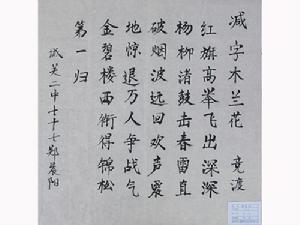 减字木兰花 竞渡
红旗高举飞出深深
杨柳渚鼓击春雷直
破烟波远回欢声震
地惊退万人争战气
金碧楼西衔得锦标
第一归
二中 郑晨阳